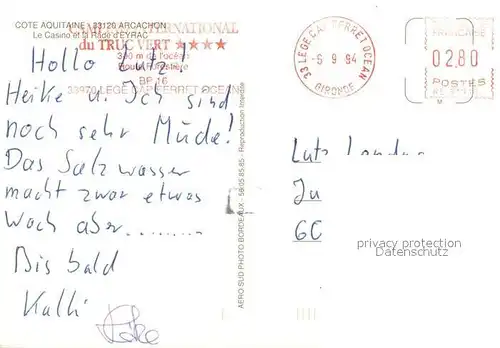 COTE AQUITAINE - 33120 ARCACHON
Le Casino et la Rade d'EYRAC
CAMPING INTERNATIONAL
du TRUC VERT ★★★★
300 m de l'océan
Route Forestière
BP 16
33970 LEGE CAP FERRET OCEAN
Hallo Lutz!
Heike u. Ich sind
noch sehr Müde!
Das Salzwasser
macht zwar etwas
Wach aber.........
Bis bald
Kalli
Heike
AERO SUD PHOTO BORDEAUX - 56.05.85.85 - Reproduction Interdite
33 LEGE CAP FERRET OCEAN
-5 9 94
GIRONDE
FRANÇAISE
02,80
POSTES
Lutz
privacy protection
Datenschutz